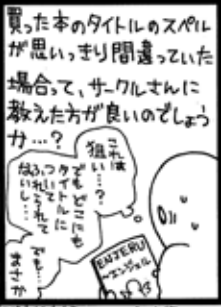 買った本のタイトルのスペル
が思いっきり間違っていた
場合って、サークルさんに
教えた方が良いのでしょう
か…?
これは
狙い…?
でも、どこにも
タイトルに
ついて
ふれられて
ないし…
でも…
まさか
ENJERU
〜エンジェル